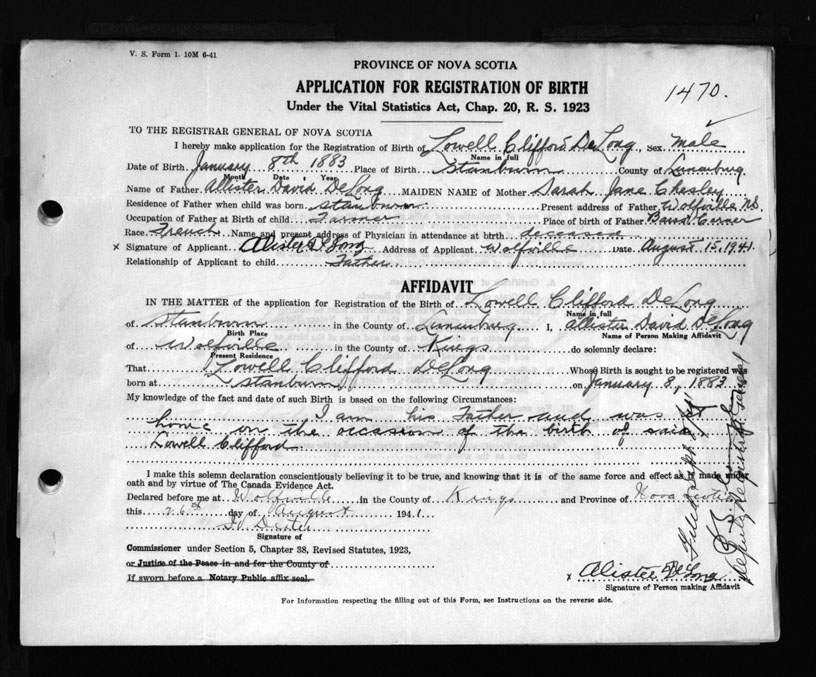 V. S. Form 1. 10M 6-41
PROVINCE OF NOVA SCOTIA
APPLICATION FOR REGISTRATION OF BIRTH
Under the Vital Statistics Act, Chap. 20, R. S. 1923
1470.
TO THE REGISTRAR GENERAL OF NOVA SCOTIA
I hereby make application for the Registration of Birth of Lowell Clifford DeLong, Sex male
Name in full
Date of Birth January 8th 1883 Place of Birth Stanburn County of Lunenburg
Month Date Year
Name of Father Allister David DeLong MAIDEN NAME of Mother Sarah Jane Chesley
Residence of Father when child was born Stanburn Present address of Father Wolfville N.S.
Occupation of Father at Birth of child Farmer Place of birth of Father Corner
Race French Name and present address of Physician in attendance at birth deceased
x Signature of Applicant Alister DeLong Address of Applicant Wolfville Date August 15, 1941
Relationship of Applicant to child Father
AFFIDAVIT
IN THE MATTER of the application for Registration of the Birth of Lowell Clifford DeLong
Name in full
of Stanburn in the County of Lunenburg I, Allister David DeLong
Birth Place Name of Person Making Affidavit
of Wolfville in the County of Kings do solemnly declare:
Present Residence
That Lowell Clifford DeLong Whose Birth is sought to be registered was
born at Stanburn on January 8, 1883
My knowledge of the fact and date of such Birth is based on the following Circumstances:
I am his Father and was at
home on the occasion of the birth of said
Lowell Clifford
I make this solemn declaration conscientiously believing it to be true, and knowing that it is of the same force and effect as if made under
oath and by virtue of The Canada Evidence Act.
Declared before me at Wolfville in the County of Kings and Province of Nova Scotia
this 26th day of August 1941
Signature of
Commissioner under Section 5, Chapter 38, Revised Statutes, 1923,
or Justice of the Peace in and for the County of
If sworn before a Notary Public affix seal.
x Alister DeLong
Signature of Person making Affidavit
For Information respecting the filling out of this Form, see Instructions on the reverse side.